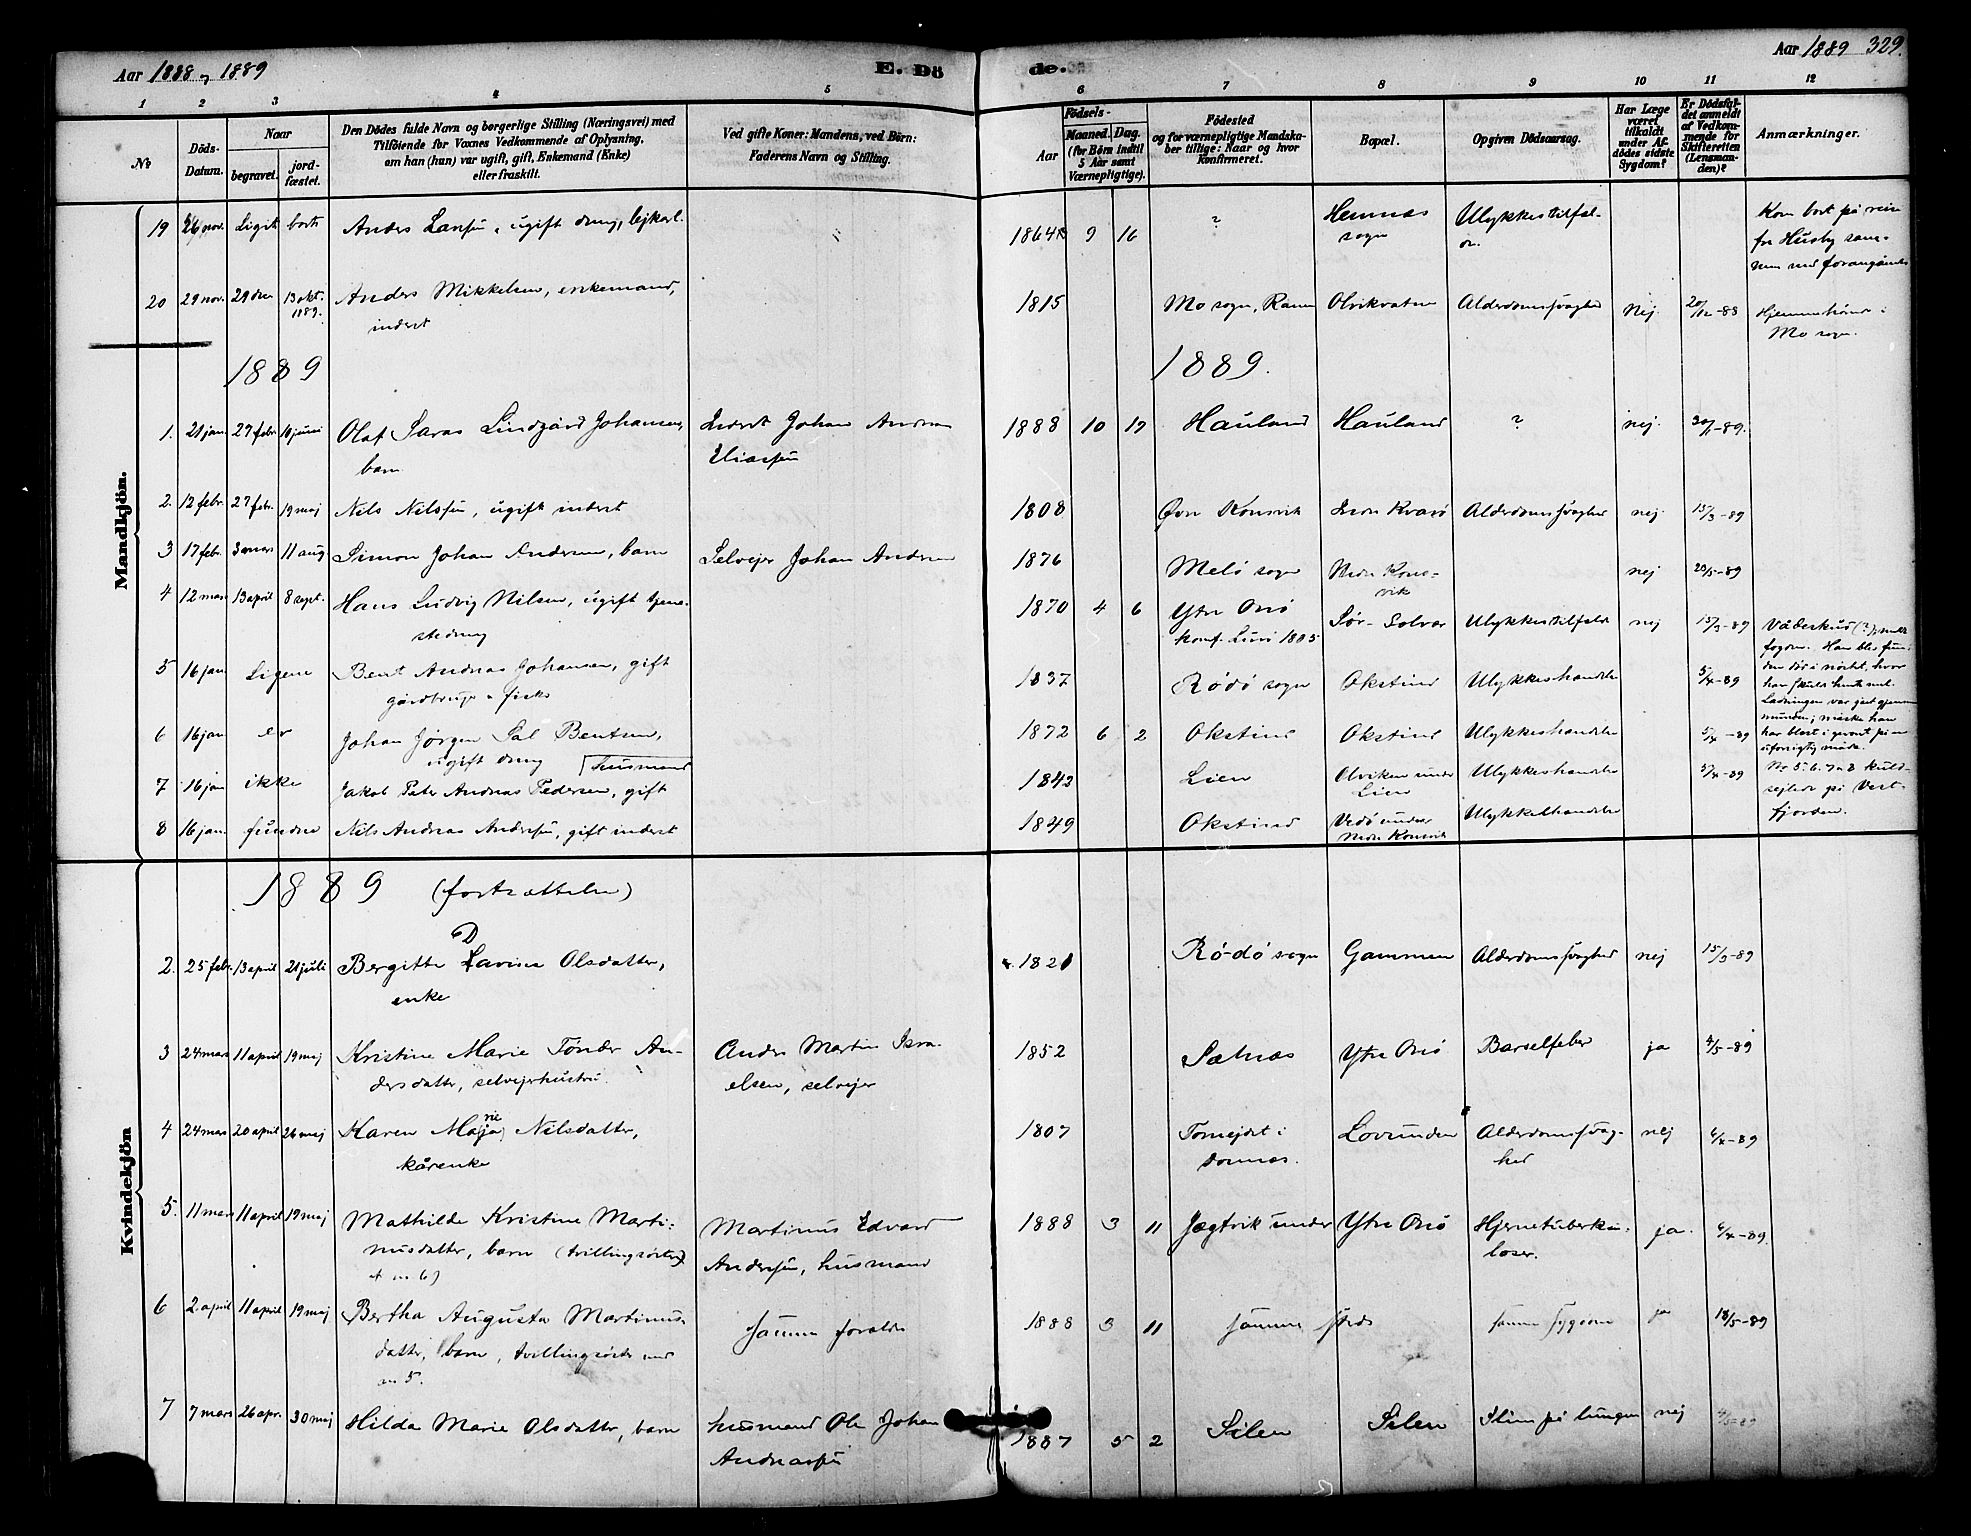 Aar 1888 og 1889
E. Dö
de.
Aar 1889 329.
1 2 3 4 5 6 7 8 9 10 11 12
No
Döds-Datum.
Naar
begravet.
jord-fæstet.
Den Dödes fulde Navn og borgerlige Stilling (Næringsvei) med
Tilföiende for Voxnes Vedkommende af Oplysning,
om han (hun) var ugift, gift, Enkemand (Enke)
eller fraskilt.
Ved gifte Koner: Mandens, ved Börn:
Faderens Navn og Stilling.
Födsels-
Aar
Maaned. Dag.
(for Börn indtil
5 Aar samt
Værnepligtige).
Födested
og for værnepligtige Mandska-
ber tillige: Naar og hvor
konfirmeret.
Bopæl.
Opgiven Dödsaarsag.
Har Læge
været
tilkaldt
under Af-
dödes sidste
Sygdom?
Er Dödsfal-
det anmeldt
af Vedkom-
mende for
Skifteretten
(Lensman-
den)?
Anmærkninger.
Mandkjön.
19 26 nov. Ligit borte Anders Larsen, ugift dreng 1864 9 16 ? Hemnæs sogn Ulykkestilfæl-
Kom bort på reise
fra Husby sam-
men med foregående
20 29 nov. 29 dec 13 okt. 1889. Anders Mikkelsen, enkemand,
inderst
1815 Mo sogn, Ranen Olvikvatne Alderdomssvaghed Nej. 20/12-88 Hjemmehörende i
Mo sogn.
1889 1889.
1. 21 jan. 27 febr. 16 juni Olaf Saras Lindgård Johansen,
barn
Inderst Johan Andreas
Eliassen
1888 10 19 Hauland Hauland ? nej. 30/1-89.
2. 12 febr. 27 febr. 19 maj Nils Nilssen, ugift inderst 1808 Övre Konsvik Indre Kvarö Alderdomssvaghed nej. 15/3-89
3 17 febr. 3 mars 11 aug. Simon Johan Andersen, barn Selvejer Johan Andersen 1876 Melö sogn Nedre Kons-
vik nej 20/5-89
4 12 mars 13 april 8 sept. Hans Ludvig Nilsen, ugift tjene-
stedreng
1870 4 6 Ytre Onö
konf. Lurö 1885 Sör-Solvær Ulykkestilfælde nej 15/3-89 Vådeskud (?)
5 16 jan. Ligene Bent Andreas Johansen, gift
gårdbruger o. fisker
1837 Rödö sogn Okstind Ulykkeshændelse 5/4-89
6 16 jan. er Johan Jörgen Sal Bentsen,
ugift dreng
1872 6 2 Okstind Okstind Ulykkeshændelse 5/4-89
7 16 jan ikke Jakob Peter Andreas Pedersen, gift husmand 1842 Lien Olviken under
Lien Ulykkeshændelse 5/4-89 No 5. 6. 7 og 8 kuld-
sejlede på Vest-
fjorden.
8 16 jan. fundne Nils Andreas Andersen, gift inderst 1849 Okstind Vedö under
Nedre Konsvik Ulykkeshændelse
Kvindekjön
1889 (fortsættelse)
2. 25 febr. 13 april 21 juli Bergitte Davina Olsdatter,
enke
1821 Rödö sogn Gammen Alderdomssvaghed nej 15/3-89
3 24 mars 11 april 19 maj Kristine Marie Tönder An-
dersdatter, selvejerhustru.
Anders Martin Isra-
elsen, selvejer
1852 Sætnæs Ytre Onö Barselfeber ja 4/5-89
4 24 mars 20 april 26 maj Karen Marie (ja) Nilsdatter,
kårenke
1807 Tomejdet i
Dønnæs. Lovunden Alderdomssvag-
hed nej 6/4-89
5. 11 mars 11 april 19 maj Mathilde Kristine Marti-
nusdatter, barn (tvillingsöster
af no 6)
Martinus Edvard
Andersen, husmand
1888 3 11 Jægtvik under Ytre Onö Hjernetuberku-
loser. ja. 6/4-89.
6 2 april 11 april 19 maj Bertha Augusta Martinus-
datter, barn, tvillingsöster med
no 5.
Samme forældre
1888 3 11 samme sted samme sygdom ja 18/5-89
7 7 mars 26 apr. 30 maj Hilda Marie Olsdatter, barn Husmand Ole Johan
Andreassen
1887 5 2 Silen Silen Slim på lungen nej 4/5-89